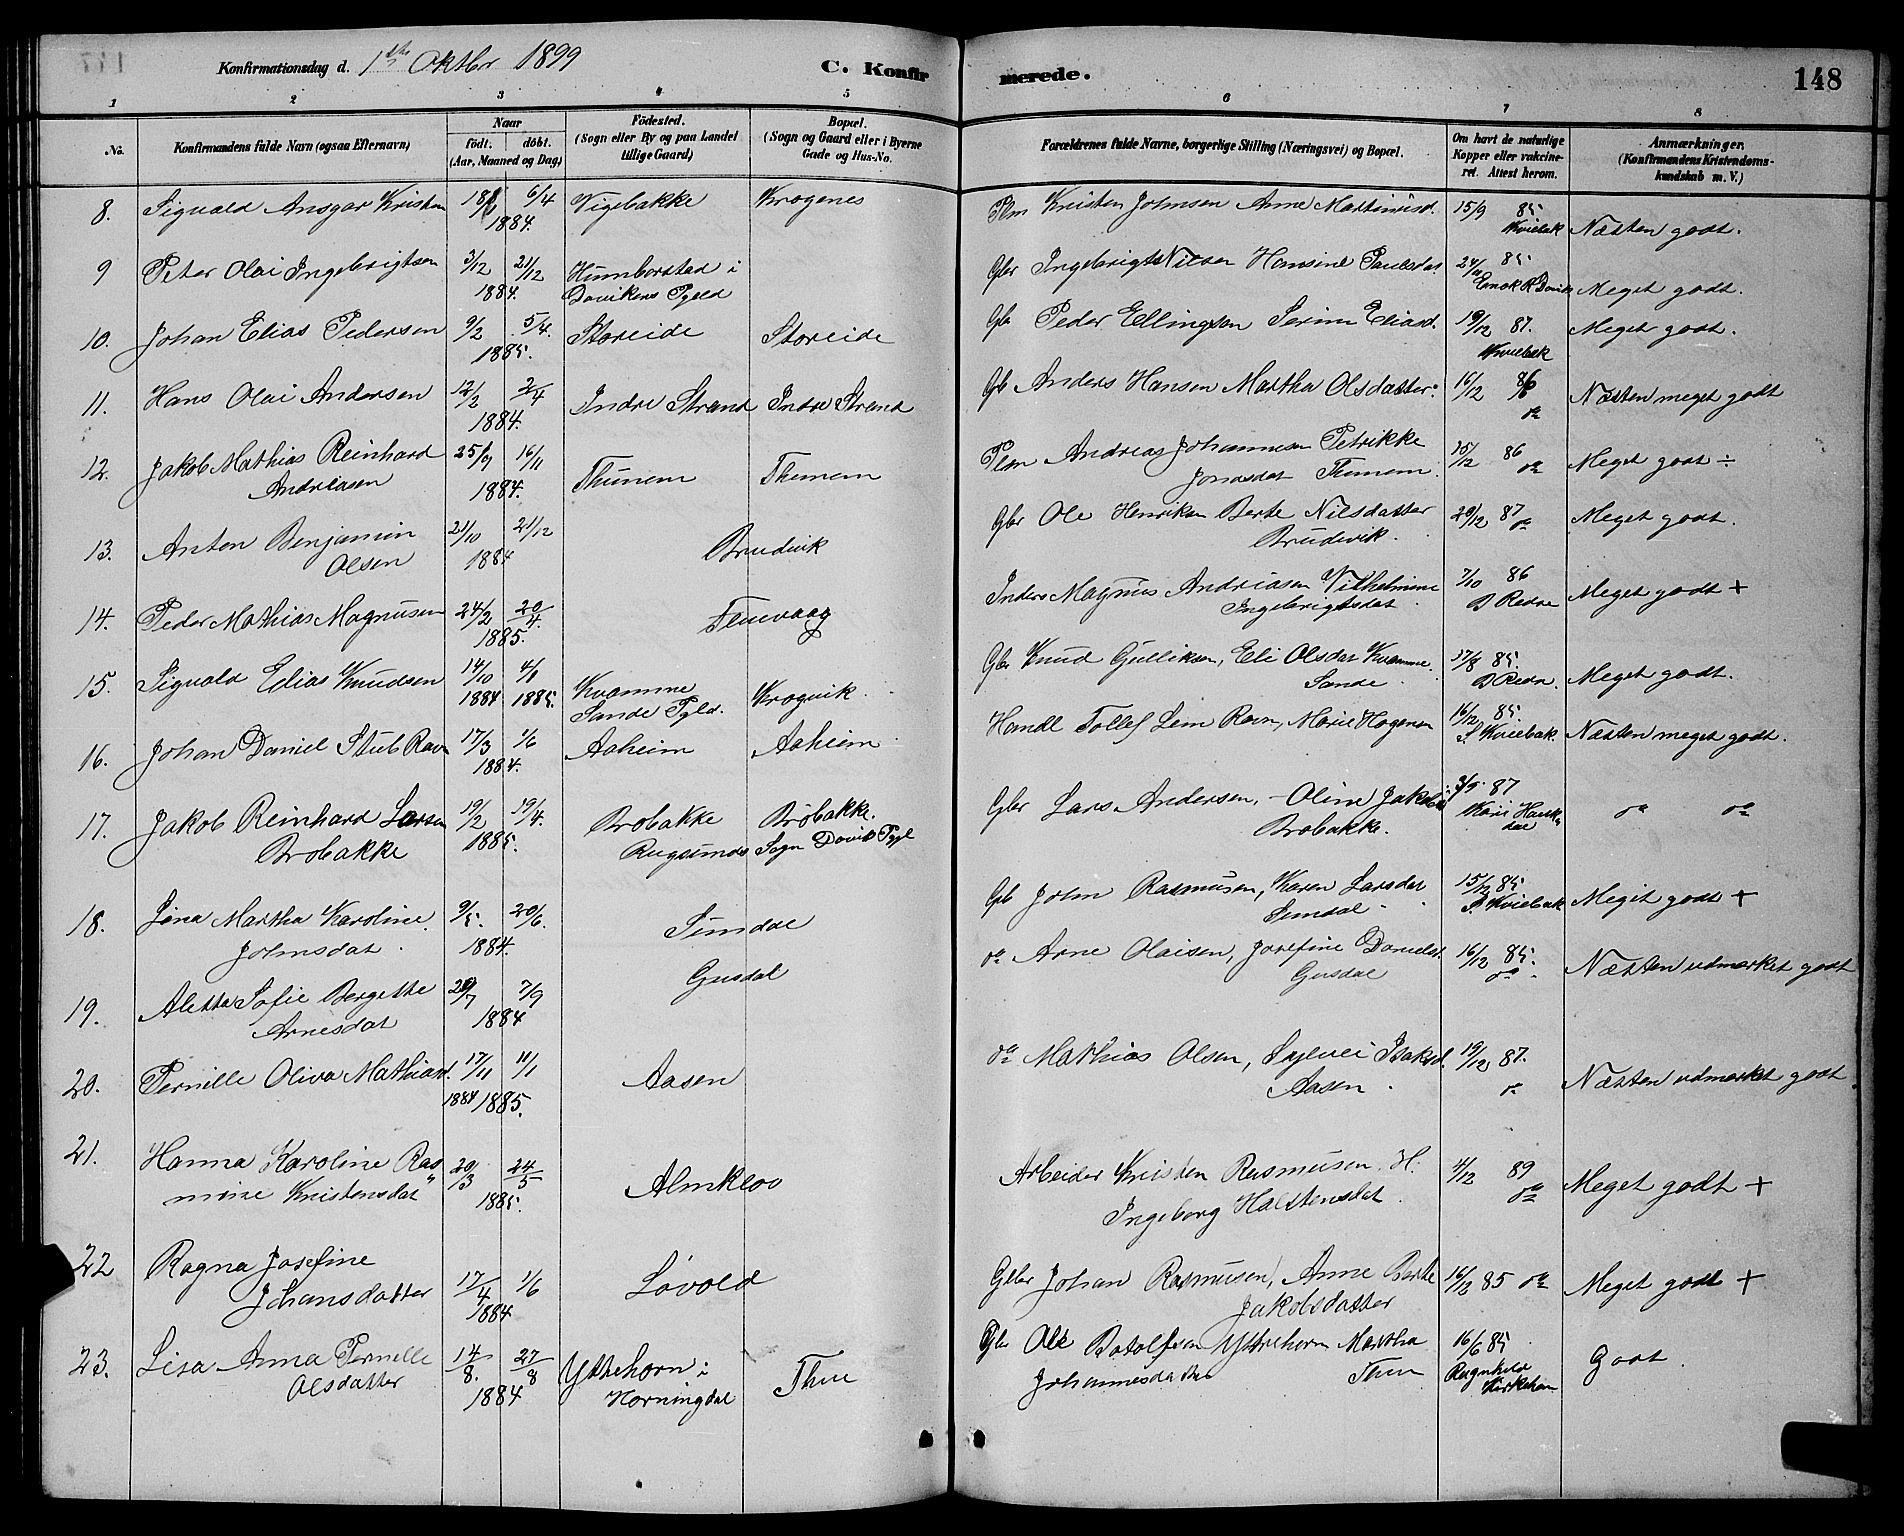 Konfirmationsdag d. 1ste Oktbr 1899
C. Konfirmerede.
148
1 2 3 4 5 6 7 8
No.
Konfirmandens fulde Navn (ogsaa Efternavn)
Naar
födt. döbt.
(Aar, Maaned og Dag)
Födested.
(Sogn eller By og paa Landet
tillige Gaard)
Bopæl.
(Sogn og Gaard eller i Byerne
Gade og Hus-No.
Forældrenes fulde Navne, borgerlige Stilling (Næringsvei) og Bopæl.
Om havt de naturlige
Kopper eller vakcine-
ret. Attest herom.
Anmærkninger.
(Konfirmandens Kristendoms-
kundskab m. V.)
8. Sigvald Ansgar Kristen 6/4 Vigebakke Krogenes Plm Kristen Johnsen Anne Martinusd. 15/9 85
1884. Kviebak Næsten godt.
9 Peter Olai Ingebrigtsen 3/12 21/12 Humborstad i Gbr Ingebrigt Nilsen Hansine Paulsdat 24/10 85
1884. Davikens Pgeld Enok R Davik Meget godt.
10. Johan Elias Pedersen 9/2 5/4 Storeide Storeide Gb Peder Ellingsen Serine Eliasd. 19/12 87. Meget godt.
1885. Kviebak
11. Hans Olai Andersen 12/2 2/4 Indre Strand Indre Strand Gb Anders Hansen Martha Olsdatter. 16/12 86 Næsten meget godt
1884. do
12. Jakob Mathias Reinhard 25/9 16/11 Thunem Thunem Plm Andreas Johannesen Petrikke 15/12 86 do Meget godt ÷
Andreasen 1884. Jonasdat Thunem
13. Anton Benjamin 21/10 21/12 Brudevik Gbr Ole Henriksen Berte Nilsdatter 20/12 87 do Meget godt.
Olsen 1884 Brudevik.
14. Peder Mathias Magnusen 24/2 20/4. Fluevaag Inders Magnus Andreasen Vilhelmine 7/10 86 Meget godt +
1885. Ingebrigtsdat. B Redse
15. Sigvald Elias Knudsen 14/10 4/1 Kvamme Krogvik. Gbr Knud Gulliksen, Eli Olsdat Kvamme 17/8 85. Meget godt.
1884 1885. Sande Pgld. Sande
16. Johan Daniel Stub Ravn 17/3 1/6 Aaheim Aaheim Handl Tollef Lem Ravn, Marie Hagensen 16/12 85. Næsten meget godt.
1884. S. Kviebak.
17. Jakob Reinhard Larsen 19/2 19/4. Brobakke Brobakke. Gbr Lars Andersen, Oline Jakobsd 3/9 87 do do
Brobakke 1885. Rugsunds Sogn Davik Pgl Brobakke.
18. Lina Martha Karoline. 9/5. 20/6. Sundal Gb John Rasmusen, Karen Larsdat 15/12 85 Meget godt +
Johnsdat. 1884. Sundal S. Kviebak
19. Aletta Sofie Bergette 20/7 7/9 Gusdal do Arne Olaisen, Josefine Danielsd. 16/12 85. Næsten udmerket godt
Arnesdat 1884 Gusdal do.
20. Pernille Oliva Mathiasd. 17/11 11/1 Aasen do Mathias Olsen, Sylvei Isaksd. 19/12 87. Næsten udmerket godt
1884 1885. Aasen. do
21. Hanna Karoline Ras 20/3 24/5 Almklov Arbeider Kristen Rasmusen. H: 4/12 89 Meget godt +
mine Kristensdat 1885. Ingeborg Halstensdat. do
22 Ragna Josefine 17/4 1/6 Løvold Gbr Johan Rasmusen, Anne Berte 16/12 85 do Meget godt +
Johansdatter 1884 Jakobsdatter
23. Lisa Anna Pernille 14/8. 27/8 Yttrehorn i Thue Gbr Ole Botolfsen Yttrehorn Martha 16/6 85 Godt.
Olsdatter 1884 Horningdal Johannesdatter Thue Ragnhild Kirkehorn